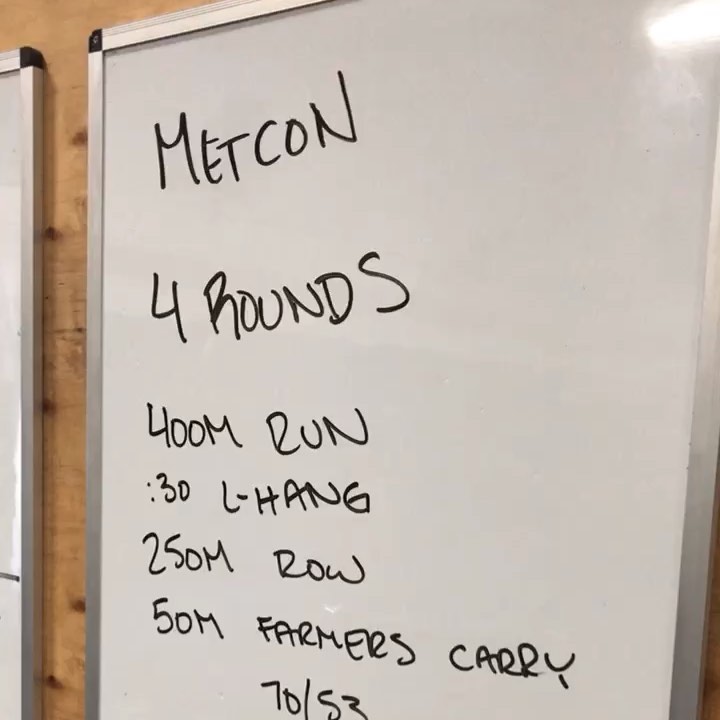 METCON
4 ROUNDS
400M RUN
:30 L-HANG
250M ROW
50M FARMERS CARRY
70/53